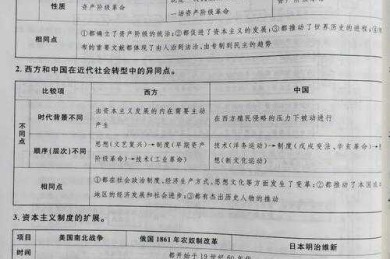 性质
资产阶级革命
一场资产阶级革命
相同点
①都确立了资产阶级的统治;②都促进了资本主义的发展;③都推动了世界历史的进程;④
布的重要文献都体现了由人治到法治、由专制到民主的趋势
2. 西方和中国在近代社会转型中的异同点。
比较项 西方 中国
不同点
时代背景不同 由资本主义发展的内在需要主动产生 在西方殖民侵略的压力下被动进行
顺序(层次)不同 思想(文艺复兴)→制度(早期资产阶级革命)→技术(工业革命) 技术(洋务运动)→制度(戊戌变法、辛亥革命)→思想(新文化运动)
相同点 ①都在社会政治制度、经济生产方式、思想文化等方面发生了变革;②都推动了本国
地区的经济发展和社会进步;③都有杰出历史人物的推动
3. 资本主义制度的扩展。
项目 美国南北战争 俄国 1861 年农奴制改革 日本明治维新
时间 都开始于 19 世纪 60 年代